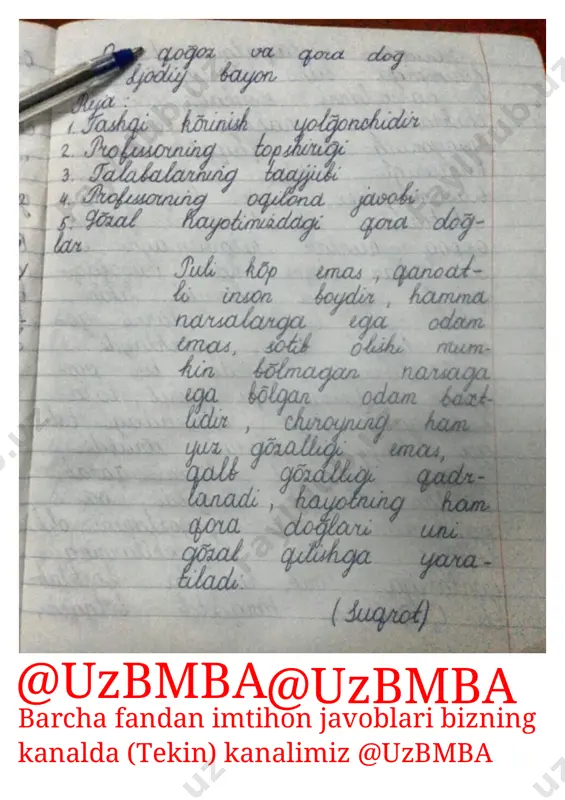 qog̃oz va qora dog̃
Ijodiy bayon
Reja :
1. Tashqi kõrinish yolg̃onchidir
2. Professorning topshirig̃i
3. Talabalarning taajjubi
4. Professorning oqilona javobi
5. Gõzal hayotimizdagi qora dog̃-
lar
Puli kõp emas, qanoat-
li inson boydir, hamma
narsalarga ega odam
emas, sotib olishi mum-
kin bõlmagan narsaga
ega bõlgan odam baxt-
lidir, chiroyning ham
yuz gõzalligi emas,
qalb gõzalligi qadr-
lanadi, hayotning ham
qora dog̃lari uni
gõzal qilishga yara-
tiladi.
(Suqrot)
@UzBMBA@UzBMBA
Barcha fandan imtihon javoblari bizning
kanalda (Tekin) kanalimiz @UzBMBA
FaylHub.uz